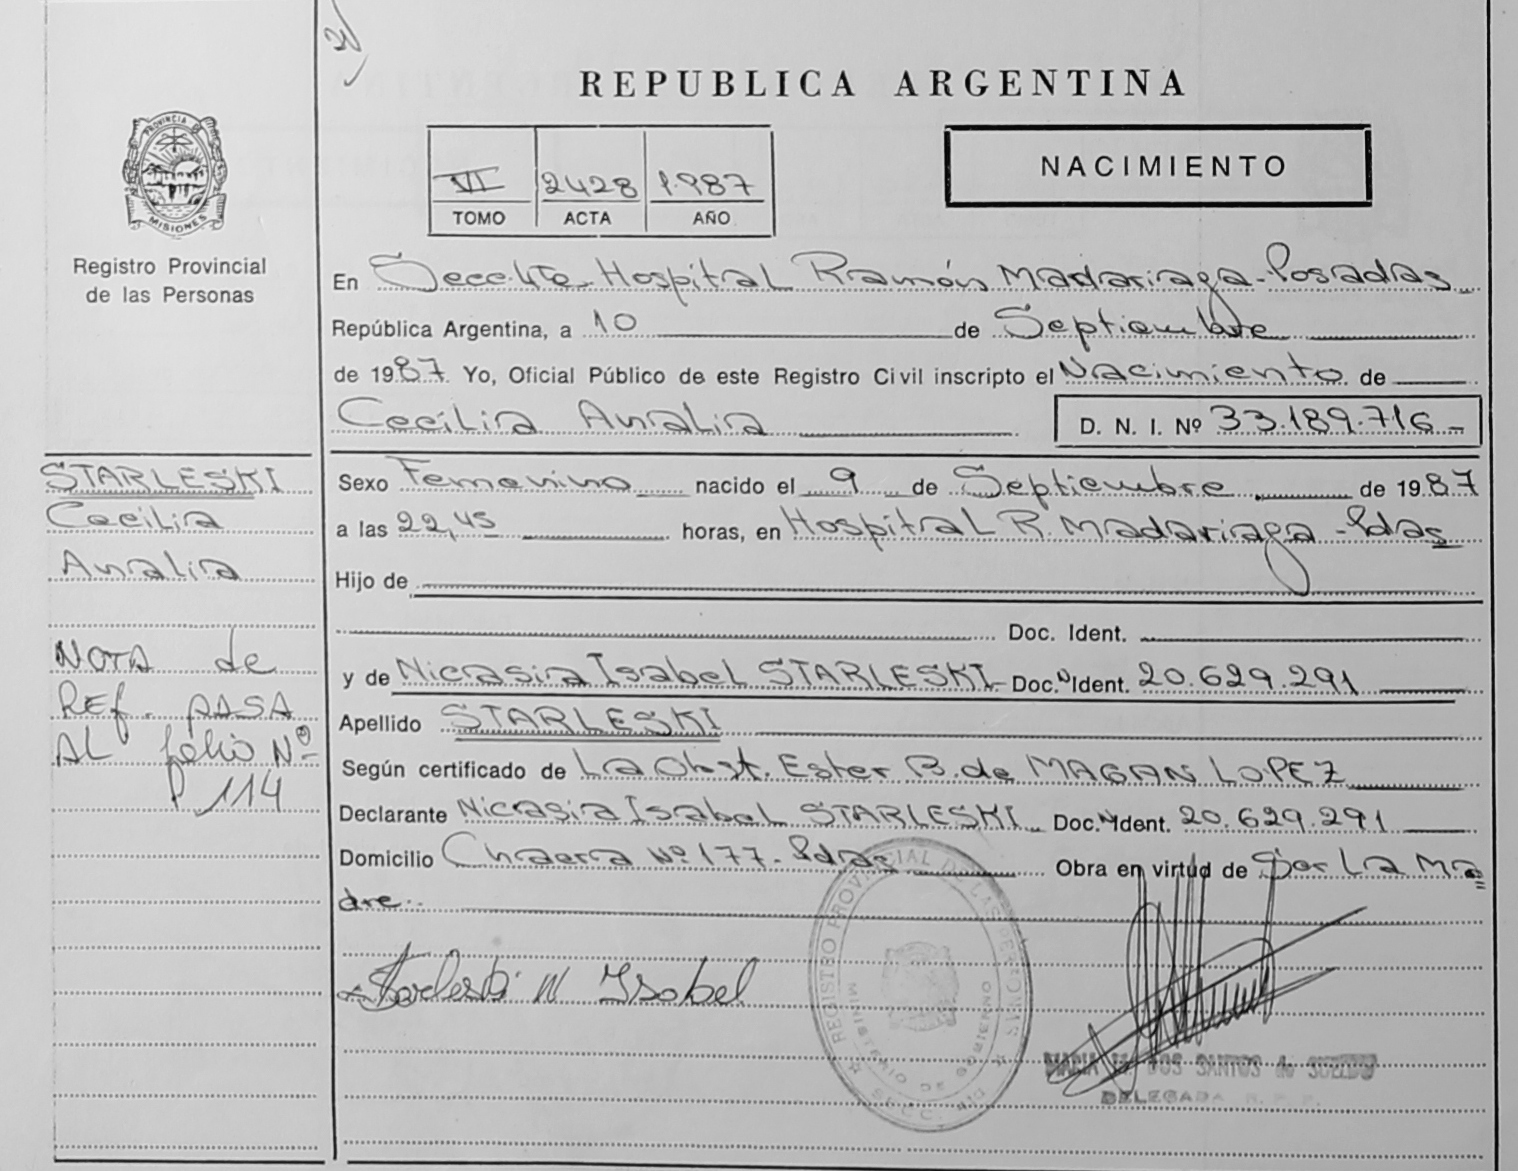 REPUBLICA ARGENTINA
NACIMIENTO
VI 2428 1.987
TOMO ACTA AÑO
PROVINCIA DE
MISIONES
Registro Provincial
de las Personas
En Secc. 4ta. Hospital Ramón Madariaga-Posadas
República Argentina, a 10 de Septiembre
de 1987. Yo, Oficial Público de este Registro Civil inscripto el Nacimiento de
Cecilia Analia D. N. I. Nº 33.189.716-
STARLESKI
Cecilia
Analia
NOTA de
Ref. PASA
AL folio Nº
114
Sexo Femenino nacido el 9 de Septiembre de 1987
a las 22,45 horas, en Hospital R. Madariaga-Pdas
Hijo de
Doc. Ident.
y de Nicasia Isabel STARLESKI- Doc. Ident. 20.629.291
Apellido STARLESKI
Según certificado de La Obst. Ester B. de MAGAN LOPEZ
Declarante Nicasia Isabel STARLESKI Doc. Ident. 20.629.291
Domicilio Chacra Nº 177- Pdas Obra en virtud de Ser La Ma=
dre.
Starleski N Isabel
REGISTRO PROVINCIAL DE LAS PERSONAS
MINISTERIO DE GOBIERNO
SECC.
MARIA DOS SANTOS de
DELEGADA R. P. P.